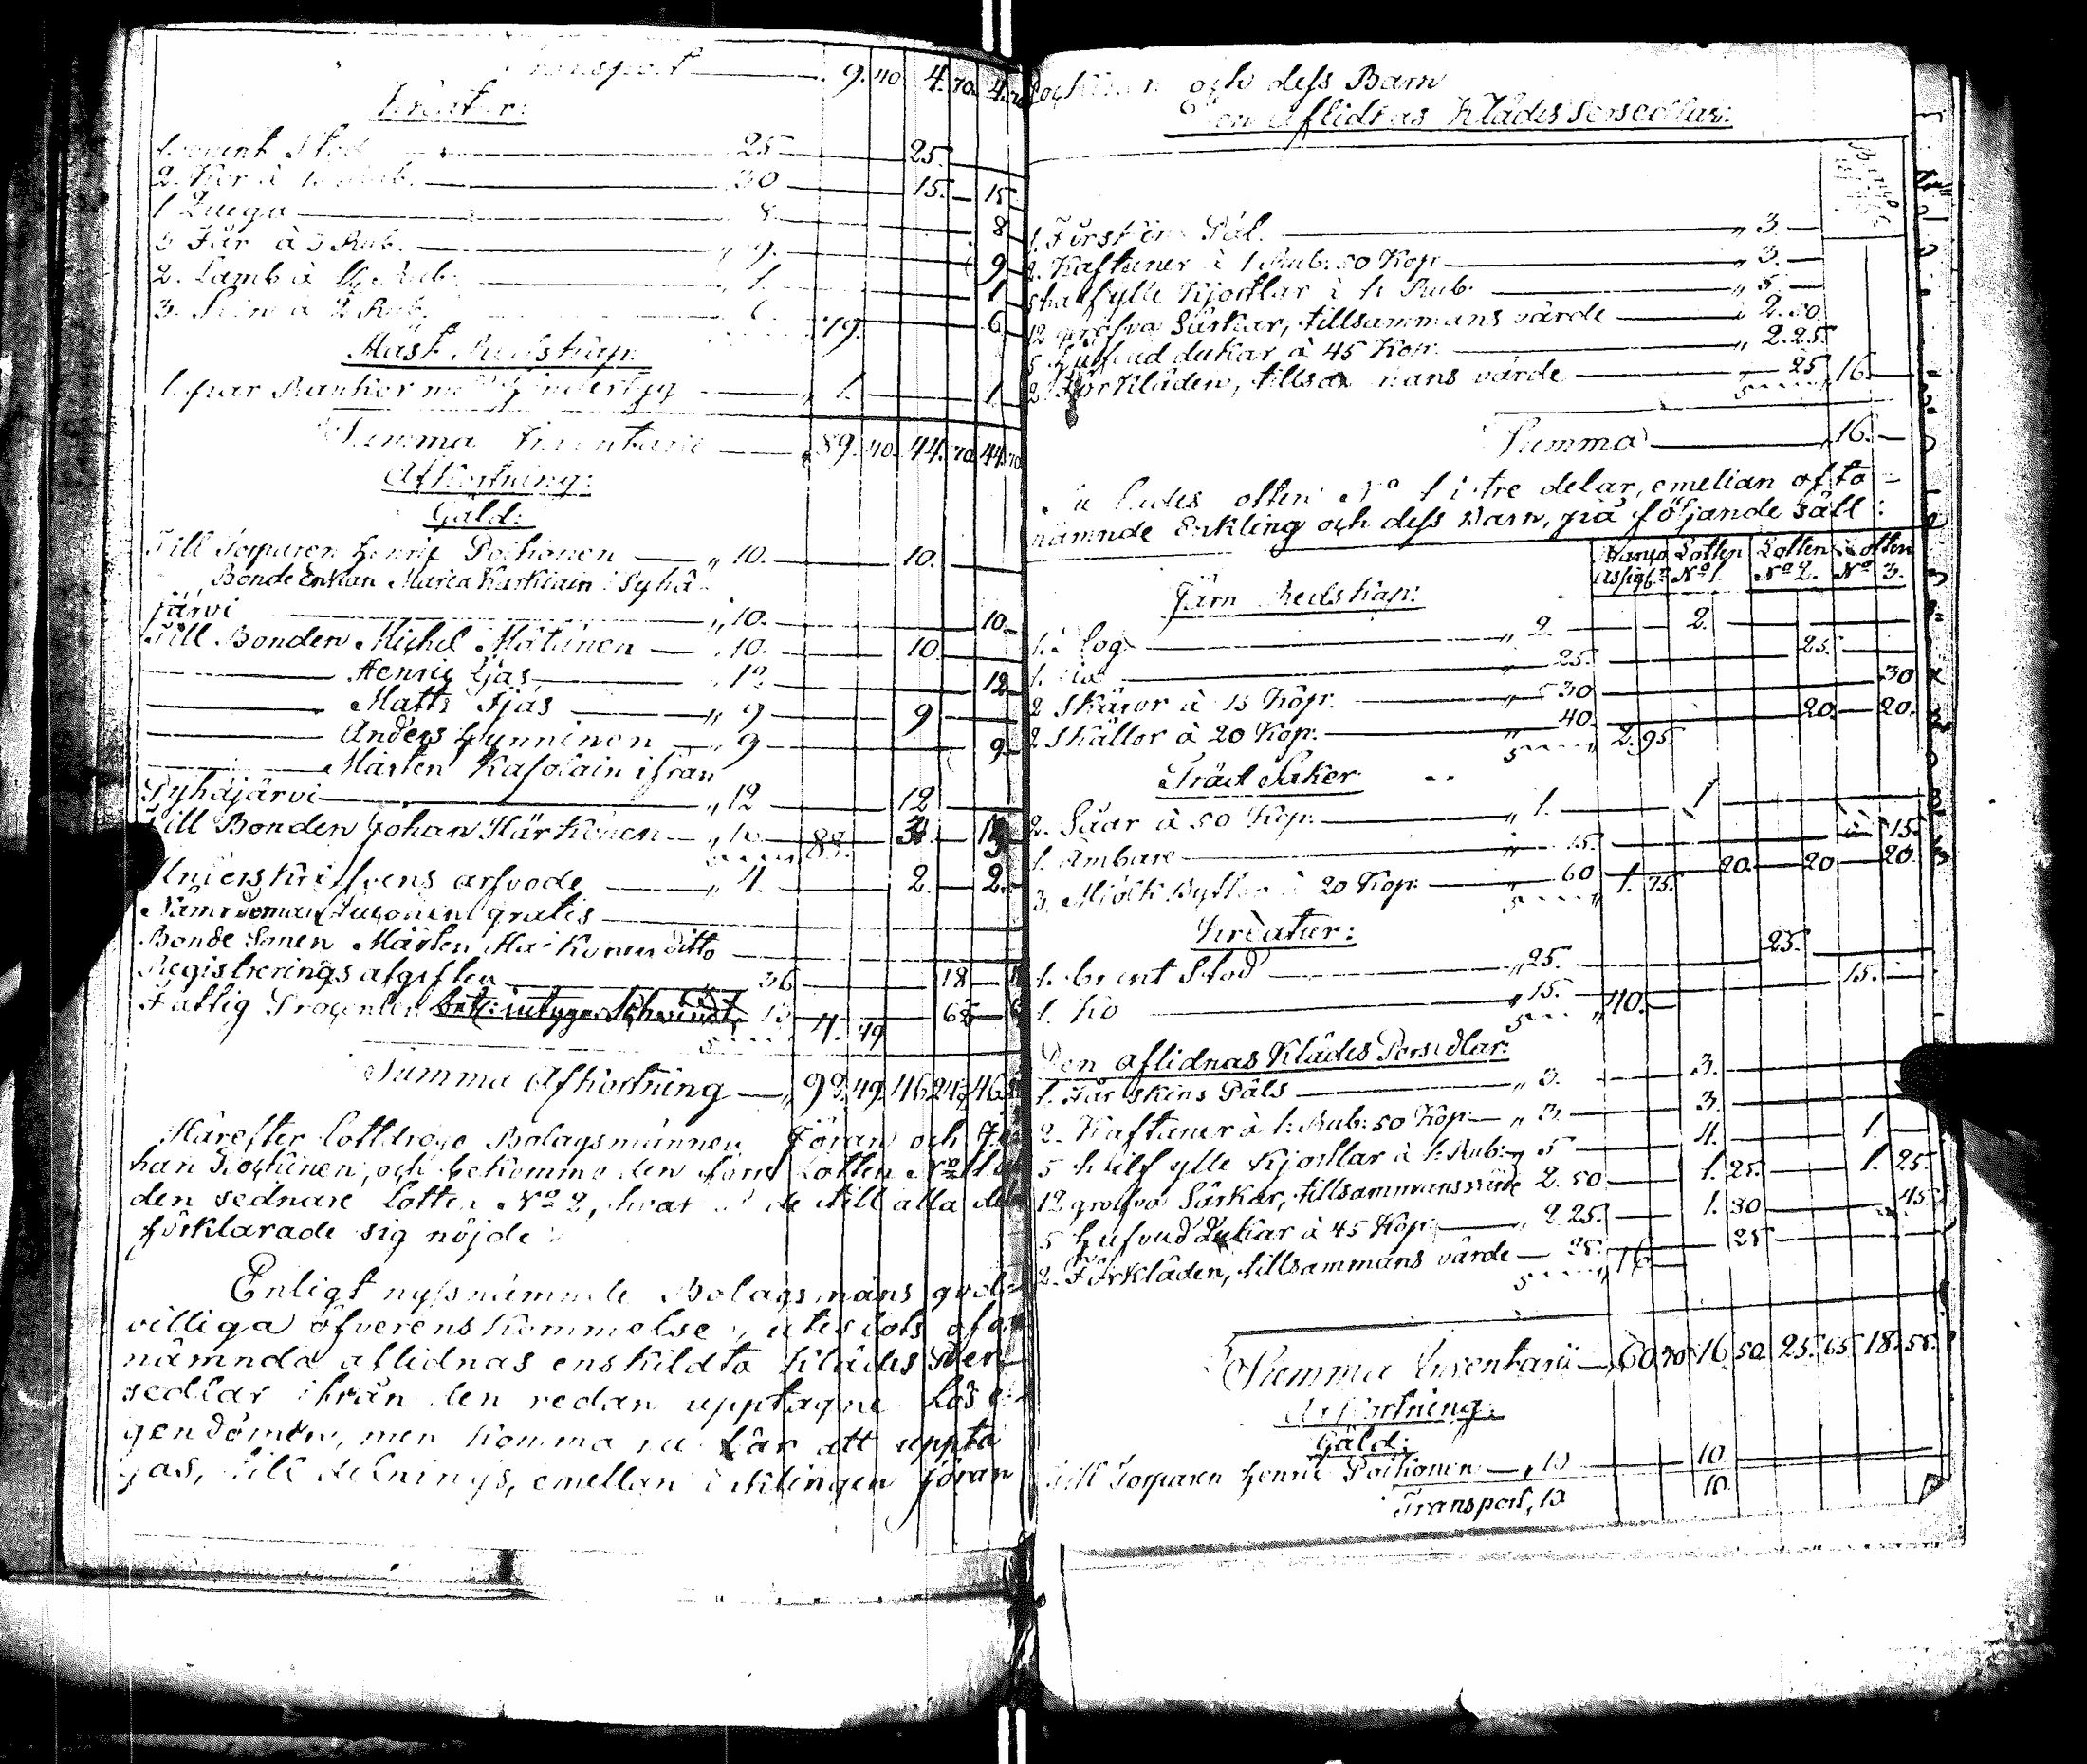 Transport — 9. 40 4. 70. 4. 70
Kreatur:
1. brunt Stod — 25 — 25.
2. Kor à 15 Rub. — 30 — 15. — 15
1 Quiga — 8 — 8
3 Får à 3 Rub. — „ 9. — 9
2. Lamb à ½ Rub: — „ 1. — 1
3. Svin à 2 Rub. — 6 79. 6
Häst Redskap:
1. par Rankor med — „ 1. — 1
Summa Inventarii — 89. 40. 44. 70 44. 70
Afkortning:
Gäld:
Till Torparen Henric Poikonen — „ 10. — 10.
Bonde Enkan Maria Karkiain i Pyhä-
järvi — „ 10. — 10.
Till Bonden Michel Mätänen — 10. — 10.
— Henric Ijäs — 12 — 12
— Matts Ijäs — „ 9 — 9
— Anders Hynninen — „ 9 — 9
— Mårten Kasolain ifrån
Pyhäjärvi — „ 12 — 12
Till Bonden Johan Härkönen — „ 16 88.
Underskrifvens arfvode — „ 4. — 2. — 2.
Nämndeman gratis —
Bonde Sonen Mårten ditto —
Registrerings afgiften — 36 — 18
Fattig Procenten 13 4. 49
Summa Afkortning — „ 92. 49. 46. 24½ 46.
Härefter lottdroge Bolagsmännen Jöran och Jo
han och bekomme den förre Lotten Nº 1 och
den sednare Lotten Nº 2, hvarmed de till alla delar
förklarade sig nöjde.
Enligt nyssnämnde Bolagsmäns god-
villiga öfverenskommelse, uteslöts ofva
nämnda aflidnas enskildta Klädes Per-
sedlar ifrån den redan upptagne Lös e-
gendomen, men komma nu här att uppta
gas, till delnings, emellan Enklingen Jöran
och dess Barn
Den Aflidnas Klädes Persedlar:
1. Fårskins Päls. — „ 3. —
2. Kaftaner à 1 Rub: 50 Kop — „ 3. —
5 half ylle Kjortlar à 1: Rub. — „ 5 —
12 grofva Särkar, tillsammans värde — „ 2. 50
5 Hufvud dukar à 45 Kop. — „ 2. 25.
2. Förkläden, tillsammans värde — 25 16. —
Summa — 16. —
delar, emellan ofta-
nämnde Enkling och dess Barn, på följande sätt:
Banco Assign. Lotten Nº 1. Lotten Nº 2. Lotten Nº 3.
Järn Redskap:
1. Plog — „ 2. — 2.
1. Lia — „ 25. — 25.
2 Skäror à 15 Kop. — „ 30 — 30
2 Skällor à 20 Kop. — „ 40. 2. 95. 20. — 20.
Träd Saker
2. Såar à 50 Kop: — „ 1. — 1
1. Ämbare — „ 15. — 15.
3. Mjölk Byttor à 20 Kop: — „ 60 1. 75. 20. — 20 — 20.
Kreatur:
1. brunt Stod — „ 25. — 25.
1. Ko — „ 15. 40. — 15.
Den aflidnas Klädes Persedlar:
1. Fårskins Päls — „ 3. — 3.
2. Kaftaner à 1: Rub: 50 Kop: — „ 3. — 3.
5 half ylle Kjortlar à 1: Rub: — „ 5 — 4. — 1. —
12 grofva Särkar, tillsammans värde 2. 50 — 1. 25. — 1. 25.
5 Hufvud dukar à 45 Kop: — „ 2. 25. — 1. 80 — 45.
2. Förkläden, tillsammans värde — 25. 16 — 25
Summa Inventarii — 60. 70 16. 50. 25. 65. 18. 55.
Afkortning:
Gäld:
Till Torparen Henric Poikonen — „ 10 — 10.
Transport, 10 10.